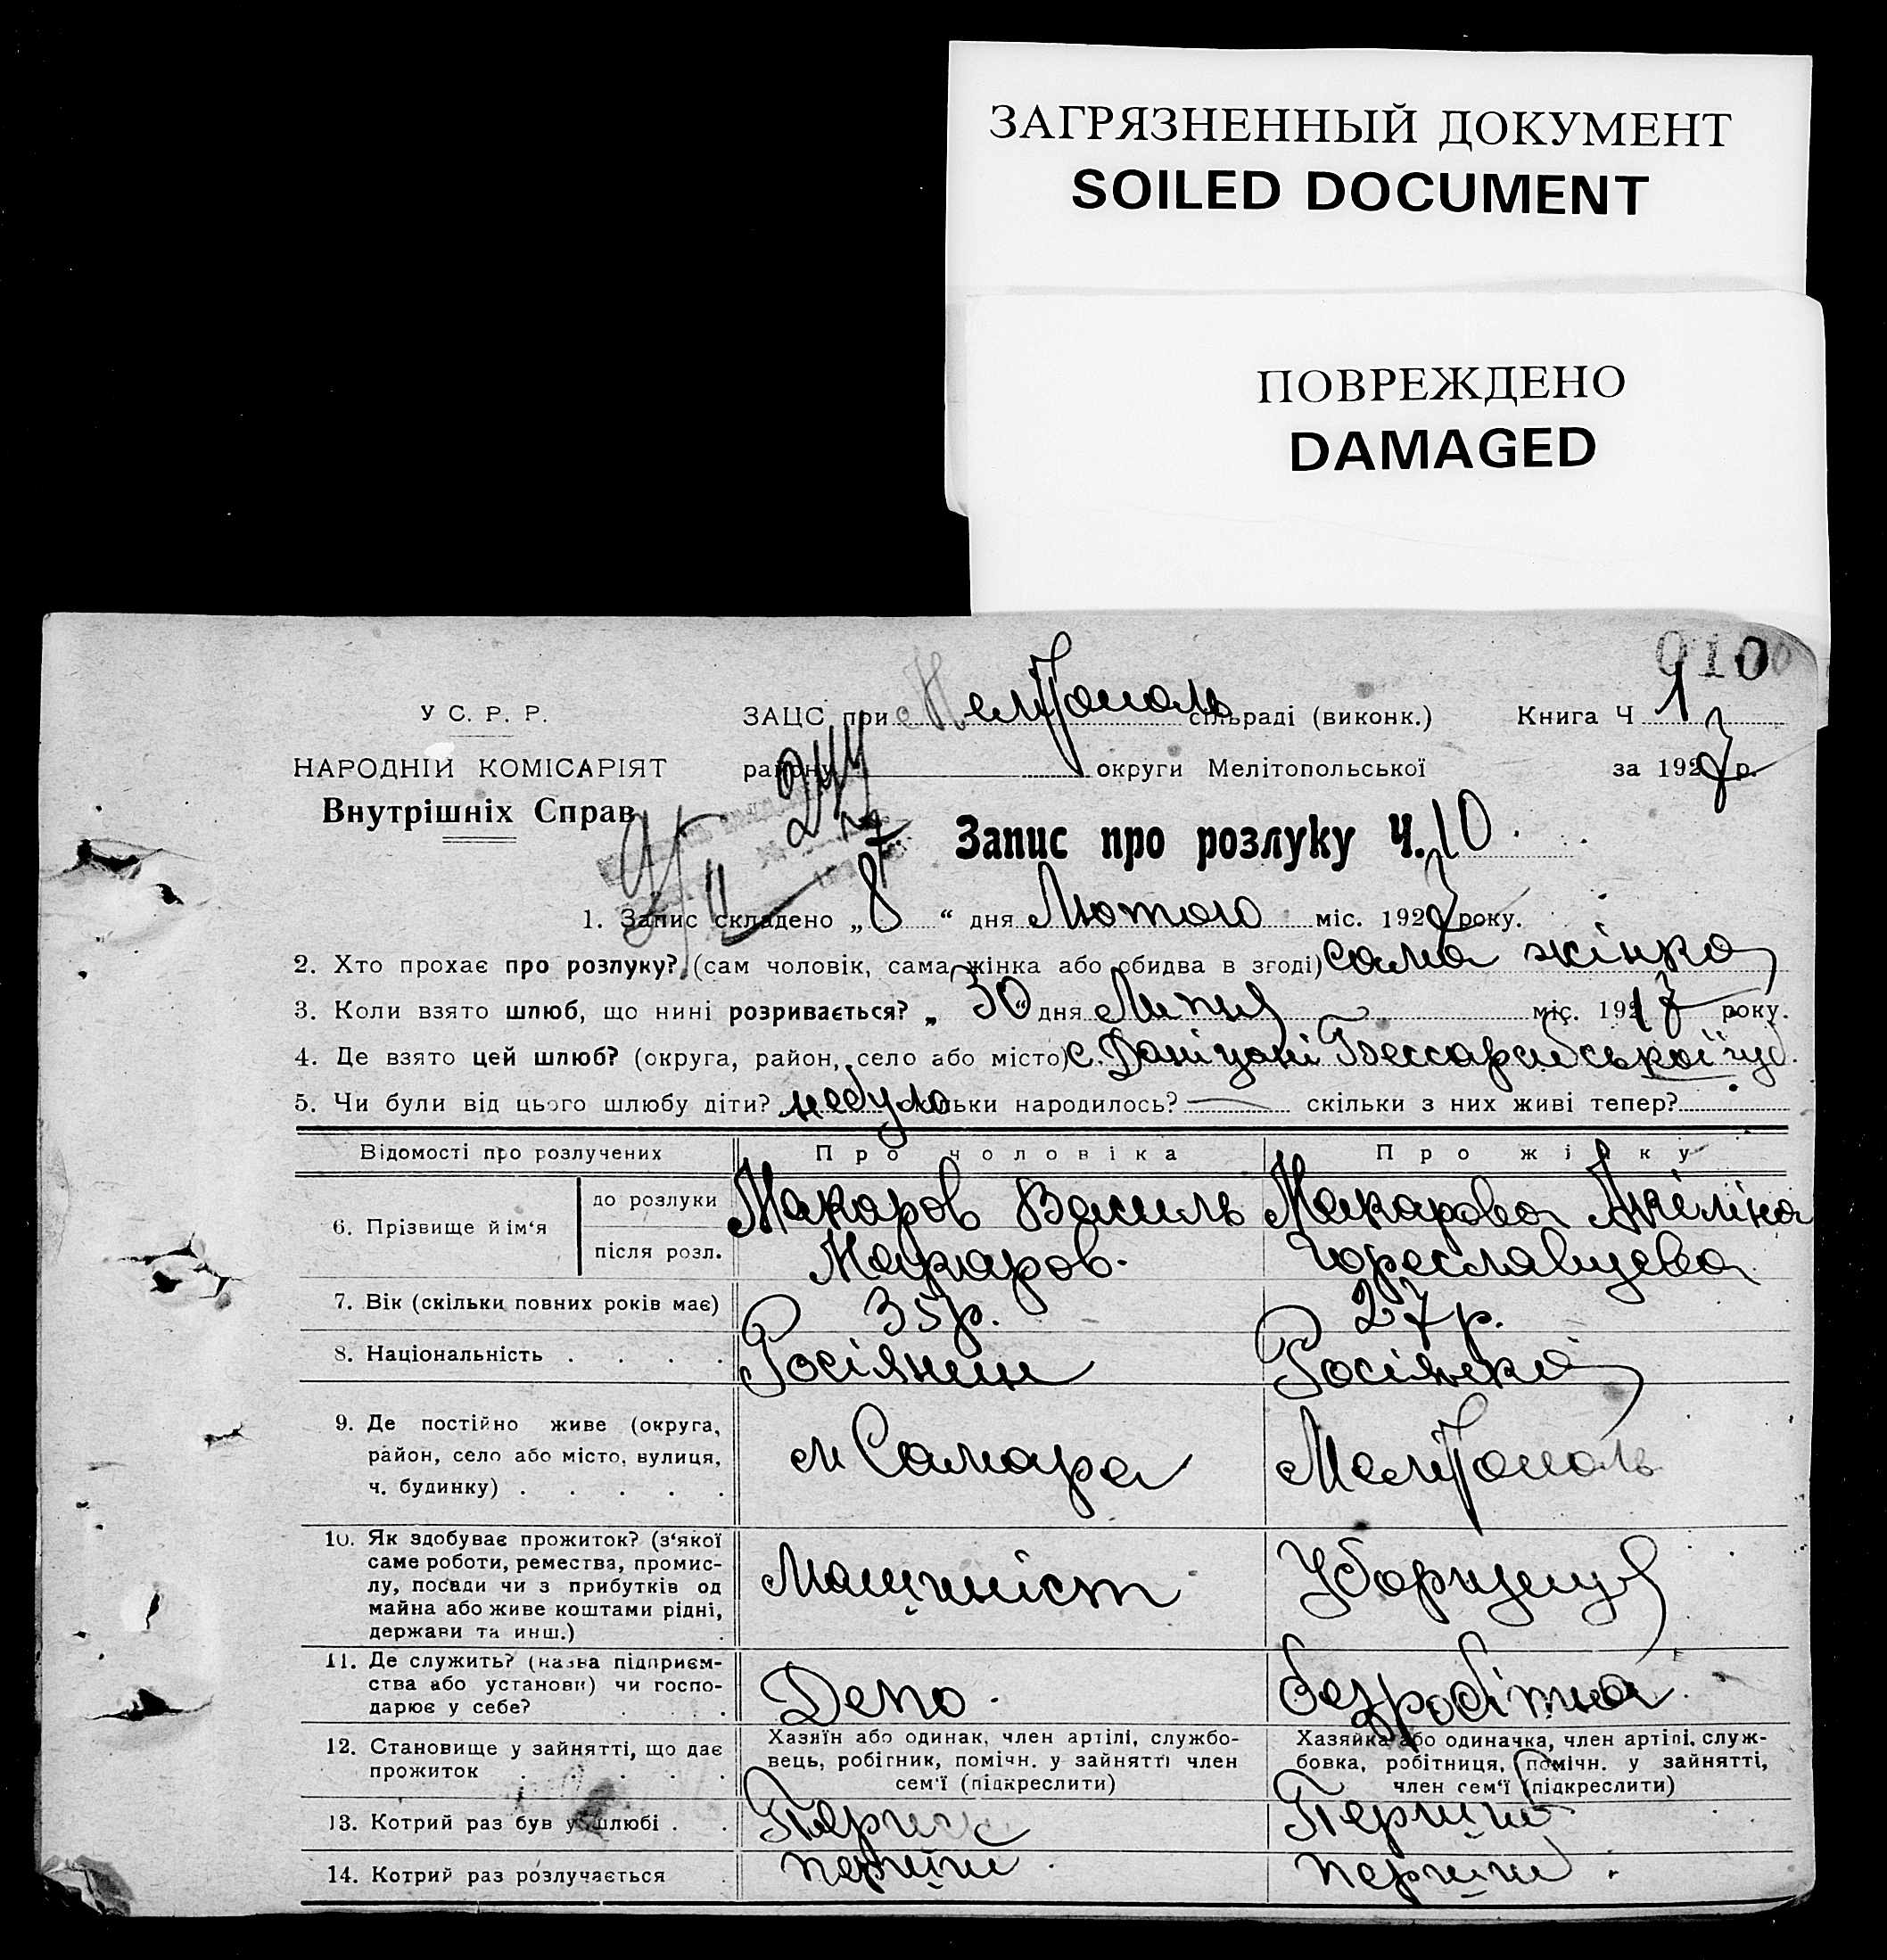 ЗАГРЯЗНЕННЫЙ ДОКУМЕНТ
SOILED DOCUMENT
ПОВРЕЖДЕНО
DAMAGED
010
У С. Р. Р.
НАРОДНІЙ КОМІСАРІЯТ
Внутрішніх Справ
ЗАЦС при Мелітополь сільраді (виконк.) Книга Ч 1
району округи Мелітопольської за 1927 р.
244
Запис про розлуку Ч. 10.
1. Запис складено „ 8 “ дня Лютого міс. 1927 року.
2. Хто прохає про розлуку? (сам чоловік, сама жінка або обидва в згоді) сама жінка
3. Коли взято шлюб, що нині розривається? „ 30 “ дня Липня міс. 1917 року.
4. Де взято цей шлюб? (округа, район, село або місто) с. Бессарабської губ.
5. Чи були від цього шлюбу діти? небуло скільки народилось? — скільки з них живі тепер?
Відомості про розлучених Про чоловіка Про жінку
6. Прізвище й ім‘я
до розлуки Макаров Василь Макарова Анжеліна
після розл. Макаров. Гореславцева
7. Вік (скільки повних років має) 35 р. 27 р.
8. Національність . . . . Росіянин Росіянка
9. Де постійно живе (округа,
район, село або місто, вулиця,
ч. будинку) . . . . . м Самара Мелітополь
10. Як здобуває прожиток? (з‘якої
саме роботи, ремества, промис-
лу, посади чи з прибутків од
майна або живе коштами рідні,
держави та инш.) Машиніст Уборщиця
11. Де служить? (назва підприєм-
ства або установи) чи госпо-
дарює у себе? . . . Депо. безробітна.
12. Становище у зайнятті, що дає
прожиток . . . . .
Хазяїн або одинак, член артілі, службо-
вець, робігник, помічн. у зайнятті член
сем‘ї (підкреслити)
Хазяйка або одиначка, член артілі, служ-
бовка, робітниця, помічн. у зайнятті,
член сем‘ї (підкреслити)
13. Котрий раз був у шлюбі . . Перший
14. Котрий раз розлучається перший. перший.